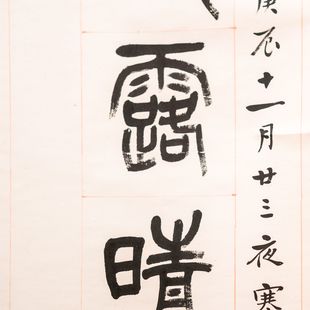 庚辰十一月廿三夜寒
露晴